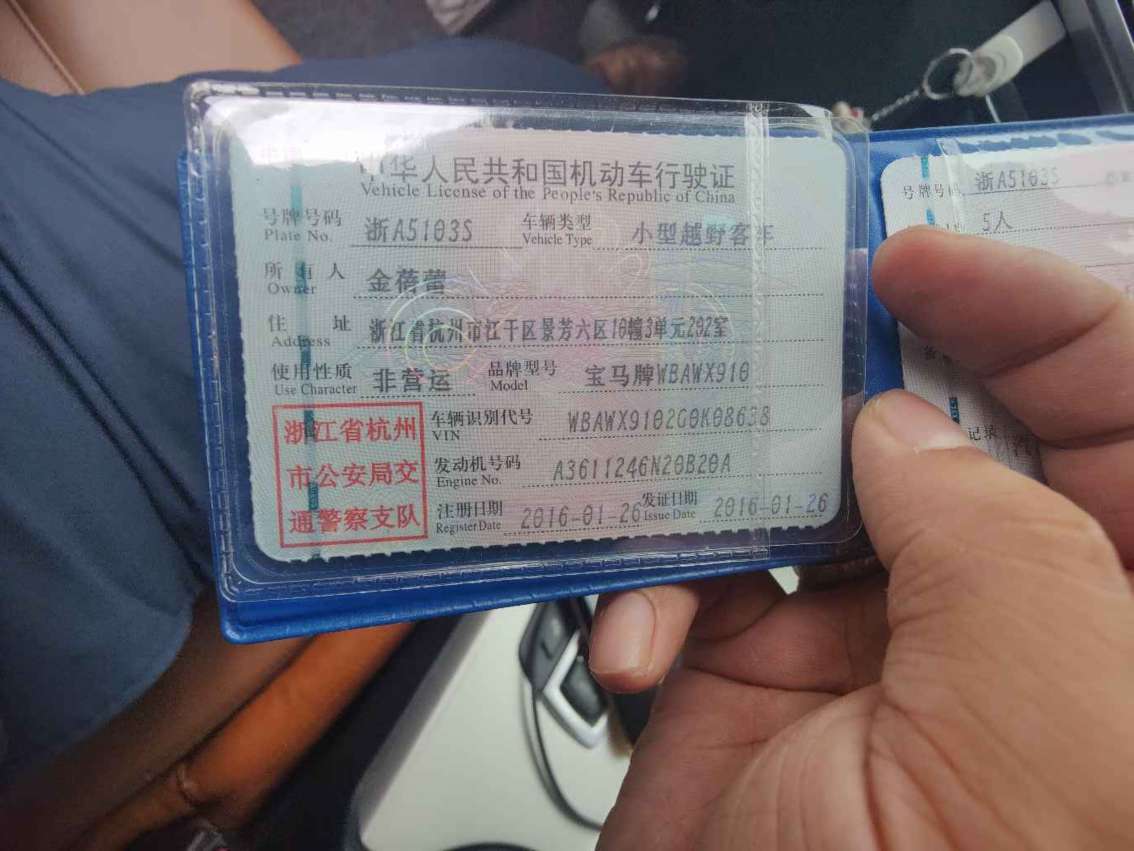 中华人民共和国机动车行驶证
Vehicle License of the People's Republic of China
号牌号码 浙A5103S 车辆类型 小型越野客车
Plate No. Vehicle Type
所有人 金蓓蕾
Owner
住址 浙江省杭州市江干区景芳六区10幢3单元202室
Address
使用性质 非营运 品牌型号 宝马牌WBAWX910
Use Character Model
浙江省杭州
市公安局交
通警察支队
车辆识别代号 WBAWX9102G0K08638
VIN
发动机号码 A3611246N20B20A
Engine No.
注册日期 2016-01-26 发证日期 2016-01-26
Register Date Issue Date
号牌号码 浙A5103S
5人
记录